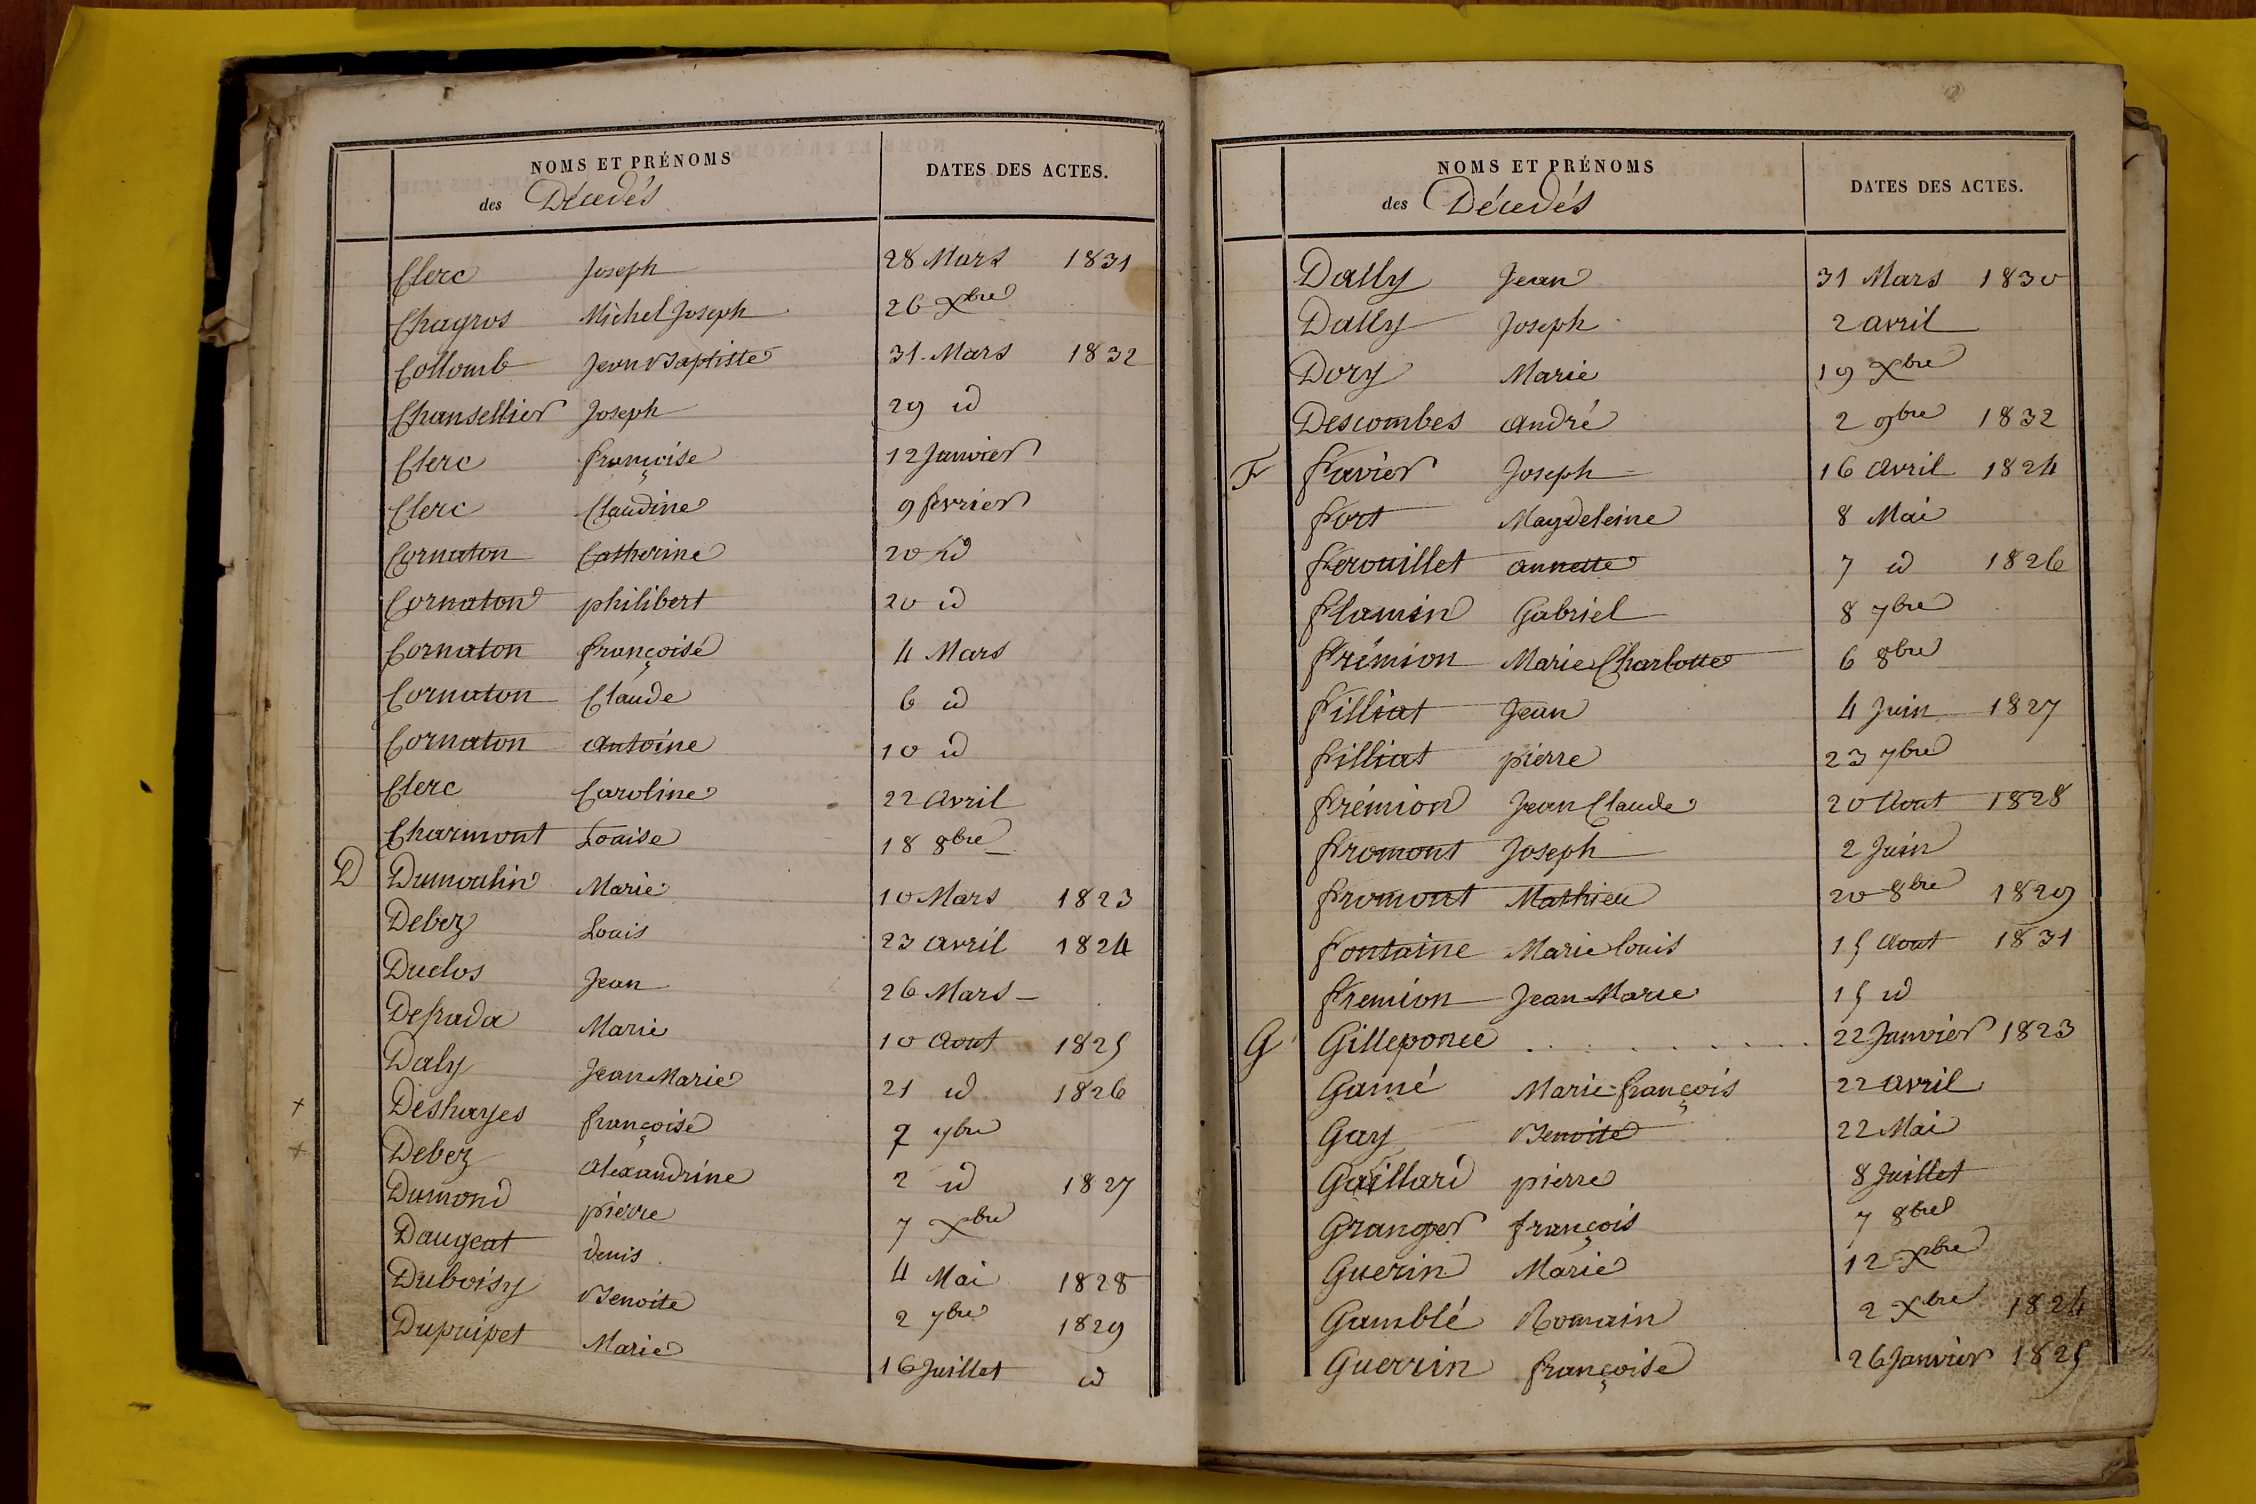 NOMS ET PRÉNOMS
des Décédés
DATES DES ACTES.
Clerc Joseph 28 Mars 1831
Chagros Michel Joseph 26 Xbre
Collomb Jean Baptiste 31 Mars 1832
Chansellier Joseph 29 id
Clerc françoise 12 Janvier
Clerc Claudine 9 fevrier
Cornaton Catherine 20 id
Cornaton philibert 20 id
Cornaton françoise 4 Mars
Cornaton Claude 6 id
Cornaton antoine 10 id
Clerc Caroline 22 avril
Charmont Louise 18 8bre
D Dumoulin Marie 10 Mars 1823
Debez Louis 23 avril 1824
Duclos Jean 26 Mars
Defrada Marie 10 Aout 1825
Daly Jean Marie 21 id 1826
+ Deshayes françoise 7 7bre
+ Debez alexandrine 2 id 1827
Dumond pierre 7 Xbre
Daugeat denis 4 Mai 1828
Duboisy Benoite 2 7bre 1829
Dupuipet Marie 16 Juillet id
NOMS ET PRÉNOMS
des Décédés
DATES DES ACTES.
Dally Jean 31 Mars 1830
Dally Joseph 2 avril
Dory Marie 19 Xbre
Descombes andré 2 9bre 1832
F Favier Joseph 16 avril 1824
fort Magdeleine 8 Mai
ferouillet annette 7 id 1826
flamin Gabriel 8 7bre
frémion Marie Charlotte 6 8bre
filliat Jean 4 Juin 1827
filliat pierre 23 7bre
frémion Jean Claude 20 Aout 1828
fromont Joseph 2 Juin
fromont Mathieu 20 8bre 1829
fontaine Marie louis 15 Aout 1831
fremion Jean Marie 15 id
G Gilleponce . . . . . . . . . . 22 Janvier 1823
Gamé Marie françois 22 avril
Gay Benoite 22 Mai
Gaillard pierre 8 Juillet
Granger françois 7 8bre
Guerin Marie 12 Xbre
Gamblé Romain 2 Xbre 1824
Guerrin françoise 26 Janvier 1825